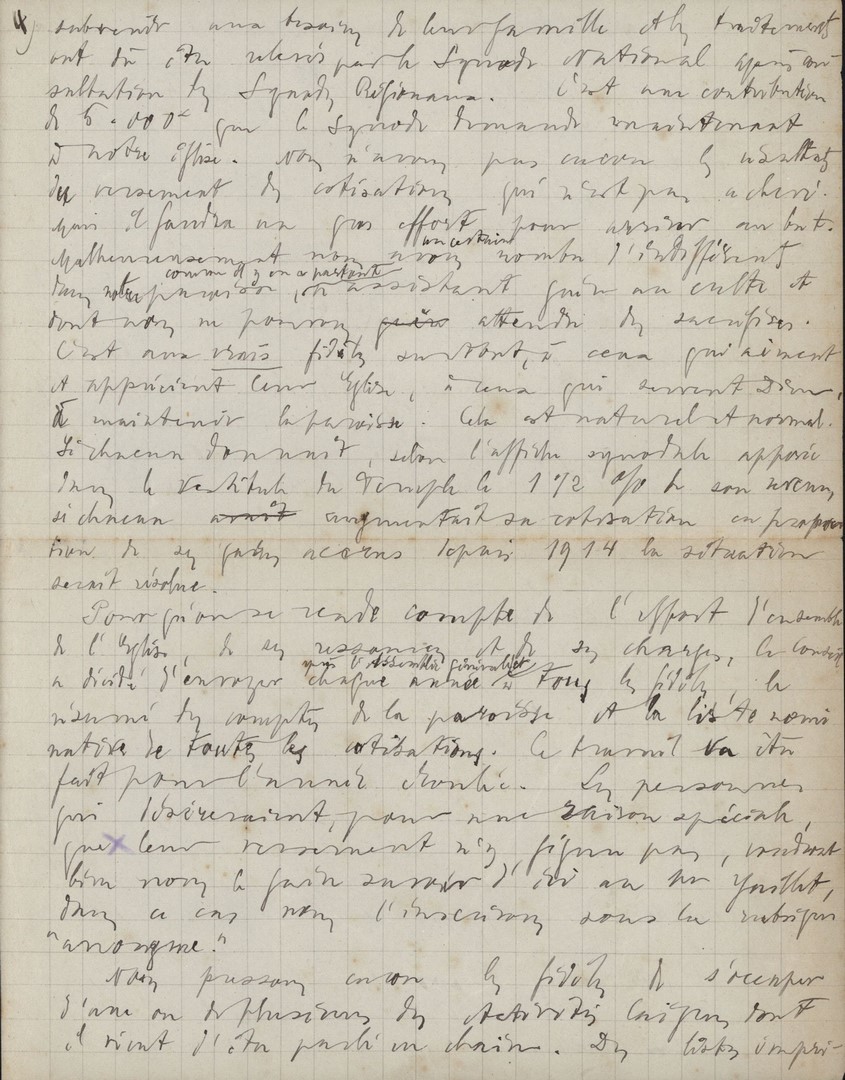 4) subvenir aux besoins de leur famille et les traitements
ont dû être relevés par le Synode National après con-
sultation des Synodes Régionaux. C'est une contribution
de 5.000 que le Synode demande maintenant
à notre Eglise. Nous n'avons pas encore les résultats
du versement des cotisations qui n'est pas achevé.
Mais il faudra un gros effort pour arriver au but.
Malheureusement nous avons un certain nombre d'indifférents
dans notre paroisse, comme il y en a partout, assistant guère au culte et
dont nous ne pouvons guère attendre des sacrifices.
C'est aux vrais fidèles surtout, à ceux qui aiment
et apprécient leur Eglise, à ceux qui servent Dieu,
à maintenir la paroisse. Cela est naturel et normal.
Si chacun donnait, selon l'affiche synodale apposée
dans le vestibule du Temple le 1 1/2 % de son revenu,
si chacun augmentait sa cotisation en propor-
tion de ses gains accrus depuis 1914 la situation
serait résolue.
Pour qu'on se rende compte de l'effort d'ensemble
de l'Eglise, de ses ressources et de ses charges, le Conseil
a décidé d'envoyer chaque année après l'Assemblée générale à tous les fidèles, le
résumé des comptes de la paroisse et la liste nomi-
native de toutes les cotisations. Ce travail va être
fait pour l'année écoulée. Les personnes
qui désireraient, pour une raison spéciale,
que leur versement n'y figure pas, voudront
bien nous le faire savoir d'ici au 1er Juillet,
dans ce cas nous l'inscrirons sous la rubrique
"anonyme."
Nous pressons encore les fidèles de s'occuper
d'une ou de plusieurs des Activités laïques dont
il vient d'être parlé en chaire. Des listes impri-